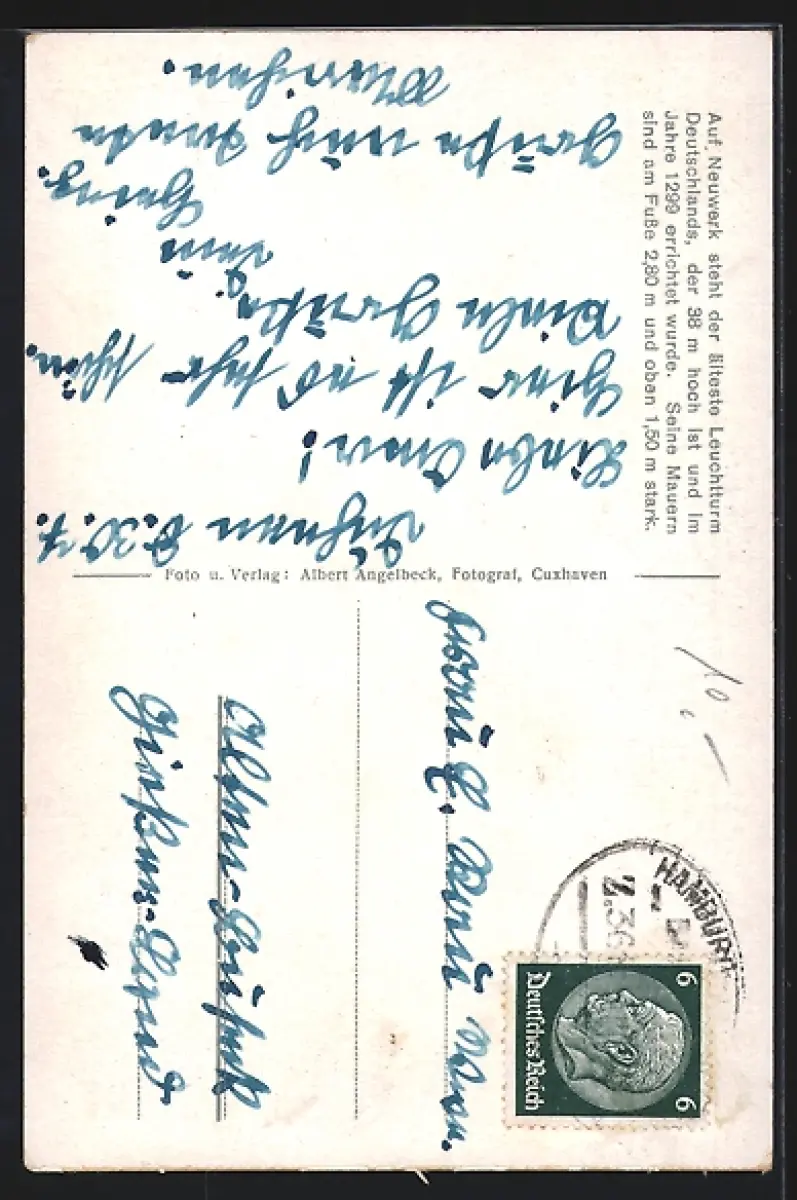 Auf Neuwerk steht der älteste Leuchtturm
Deutschlands, der 38 m hoch ist und im
Jahre 1299 errichtet wurde. Seine Mauern
sind am Fuße 2,80 m und oben 1,50 m stark.
Duhnen 30.7.
Liebe Omi!
Hier ist es sehr schön.
Viele Grüße,
dein
Heinz.
Grüße auch Tante
Mariechen.
Foto u. Verlag: Albert Angelbeck, Fotograf, Cuxhaven
Frau E.
Alten-Buseck
Gießen-Land
10.-
HAMBURG
Deutsches Reich
6 6